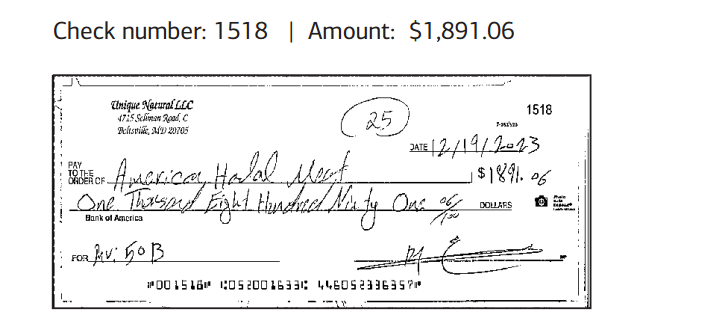 Check number: 1518 | Amount: $1,891.06
Unique Natural LLC
1518
4715 Sellman Road, C
Beltsville, MD 20705
25
DATE 12/19/2023
PAY
TO THE
ORDER OF American Halal Meat $1891.06
One Thousand Eight Hundred Ninty One 06/100 DOLLARS
Bank of America
FOR Inv: 50B
⑈001518⑈ ⑆052001633⑆ 446052336357⑈